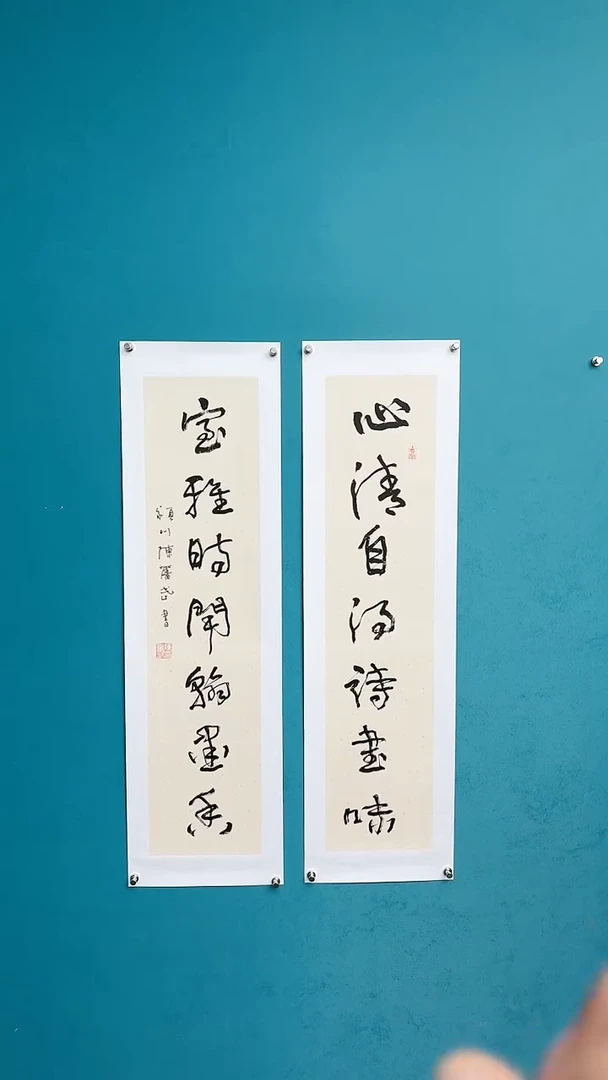 心清自得詩書味
室雅時聞翰墨香
潁川陳
書